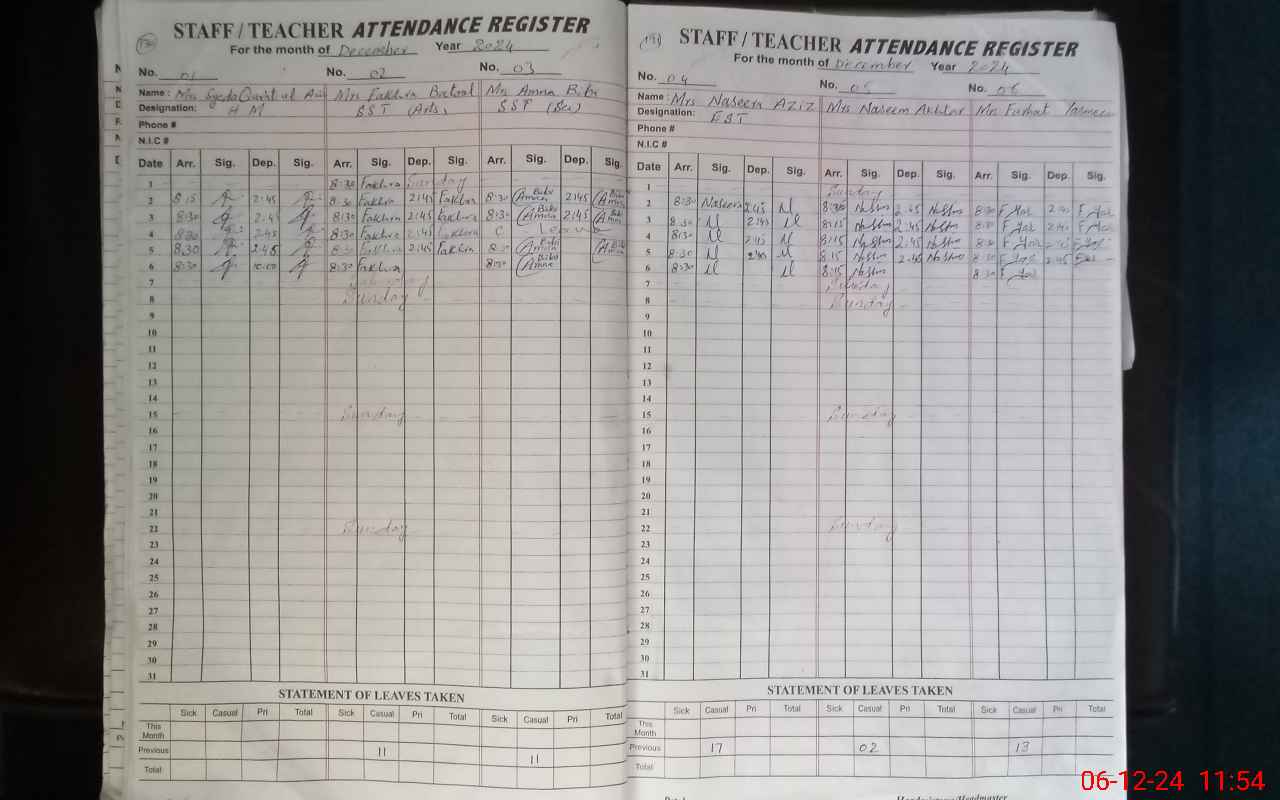 (190)
STAFF / TEACHER ATTENDANCE REGISTER
For the month of December Year 2024
No. 01 No. 02 No. 03
Name : Mrs Syeda Mrs Fakhra Batool Mrs Amna Bibi
Designation: H M SST (Arts) SST (Sci)
Phone #
N.I.C #
Date Arr. Sig. Dep. Sig. Arr. Sig. Dep. Sig. Arr. Sig. Dep. Sig.
1 8:30 Fakhra Sunday
2 8:15 2:45 8:30 Fakhra 2:45 Fakhra 8:30 Amna Bibi 2:45 Amna Bibi
3 8:30 2:45 8:30 Fakhra 2:45 Fakhra 8:30 Amna Bibi 2:45 Amna Bibi
4 8:30 2:45 8:30 Fakhra 2:45 Fakhra C Leave
5 8:30 2:45 8:30 Fakhra 2:45 Fakhra 8:30 Amna Bibi Amna Bibi
6 8:30 8:30 Fakhra 8:30 Amna Bibi
7
8 Sunday
9
10
11
12
13
14
15 Sunday
16
17
18
19
20
21
22 Sunday
23
24
25
26
27
28
29
30
31
STATEMENT OF LEAVES TAKEN
Sick Casual Pri Total Sick Casual Pri Total Sick Casual Pri Total
This Month
Previous 11 11
Total
(191)
STAFF / TEACHER ATTENDANCE REGISTER
For the month of December Year 2024
No. 04 No. 05 No. 06
Name : Mrs Naseem Aziz Mrs Naseem Akhtar Mrs Farhat Yasmeen
Designation: EST
Phone #
N.I.C #
Date Arr. Sig. Dep. Sig. Arr. Sig. Dep. Sig. Arr. Sig. Dep. Sig.
1 Sunday
2 8:30 Naseem 2:45 8:30 2:45 8:30 2:45
3 8:30 2:45 8:15 2:45 8:30 2:45
4 8:30 2:45 8:15 2:45 8:30 2:45
5 8:30 8:15 2:45 8:30 2:45
6 8:30 8:15 8:30
7
8 Sunday
9
10
11
12
13
14
15 Sunday
16
17
18
19
20
21
22 Sunday
23
24
25
26
27
28
29
30
31
STATEMENT OF LEAVES TAKEN
Sick Casual Pri Total Sick Casual Pri Total Sick Casual Pri Total
This Month
Previous 17 02 13
Total
06-12-24 11:54